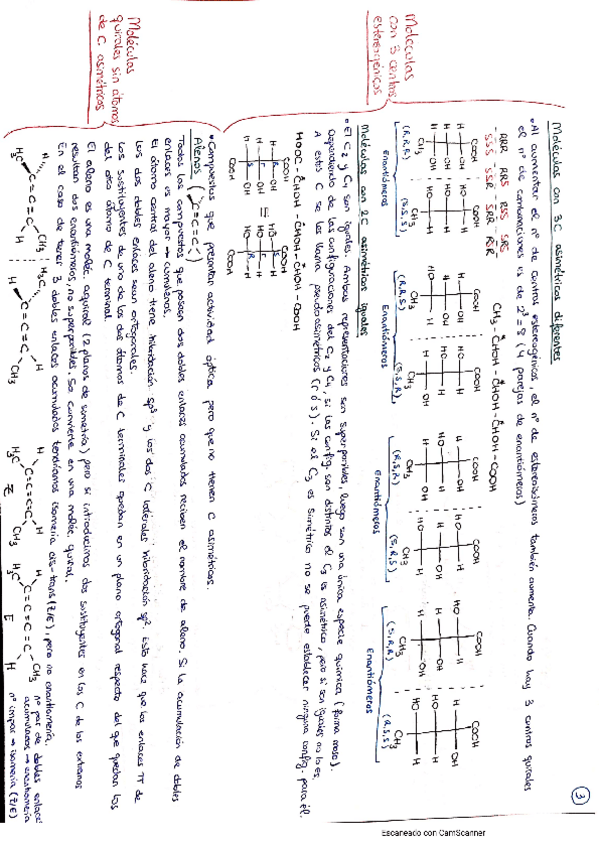 3
Moléculas con 3 centros estereogénicos
Moléculas con 3 C asimétricos diferentes
• Al aumentar el nº de centros estereogénicos, el nº de estereoisómeros también aumenta. Cuando hay 3 centros quirales
el nº de combinaciones es de 2³ = 8 (4 parejas de enantiómeros)
CH3 - CHOH - CHOH - CHOH - COOH
RRR RRS RSS SRS
SSS SSR SRR RSR
COOH COOH COOH COOH COOH COOH COOH COOH
CH3 CH3 CH3 CH3 CH3 CH3 CH3 CH3
(R,R,R) (S,S,S) (R,R,S) (S,S,R) (R,S,R) (S,R,S) (S,R,R) (R,S,S)
Enantiómeros Enantiómeros Enantiómeros Enantiómeros
Moléculas con 2C asimétricos iguales
• El C2 y C4 son iguales. Ambas representaciones son superponibles, luego son una única especie química (forma meso).
Dependiendo de las configuraciones del C2 y C4, si las config. son distintas el C3 es asimétrico, pero si son iguales no lo es.
A estos C se les llama pseudoasimétricos (r ó s). Si el C3 es simétrico no se puede establecer ninguna config. para él.
HOOC - CHOH - CHOH - CHOH - COOH
COOH COOH
H OH HO H
H OH ≡ HO H
H OH HO H
COOH COOH
Moléculas quirales sin átomos de C asimétricos
• Compuestos que presentan actividad óptica pero que no tienen C asimétricos.
Alenos ( C=C=C )
Todos los compuestos que posean dos dobles enlaces acumulados reciben el nombre de aleno. Si la acumulación de dobles
enlaces es mayor → cumulenos.
El átomo central del aleno tiene hibridación sp y los dos C laterales hibridación sp². Esto hace que los enlaces π de
los dos dobles enlaces sean ortogonales.
Los sustituyentes de uno de los dos átomos de C terminales quedan en un plano ortogonal respecto del que quedan los
del otro átomo de C terminal.
El aleno es una moléc. aquiral (2 planos de simetría) pero si introducimos dos sustituyentes en los C de los extremos
resultan dos enantiómeros, no superponibles. Se convierte en una moléc. quiral.
En el caso de tener 3 dobles enlaces acumulados tendríamos isomería cis-trans (Z/E), pero no enantiomería.
H C=C=C CH3 H3C H
H3C H H C=C=C CH3
H C=C=C=C H H C=C=C=C CH3
H3C CH3 H3C H
Z E
nº par de dobles enlaces
acumulados → enantiomería
nº impar → isomería (Z/E)
Escaneado con CamScanner